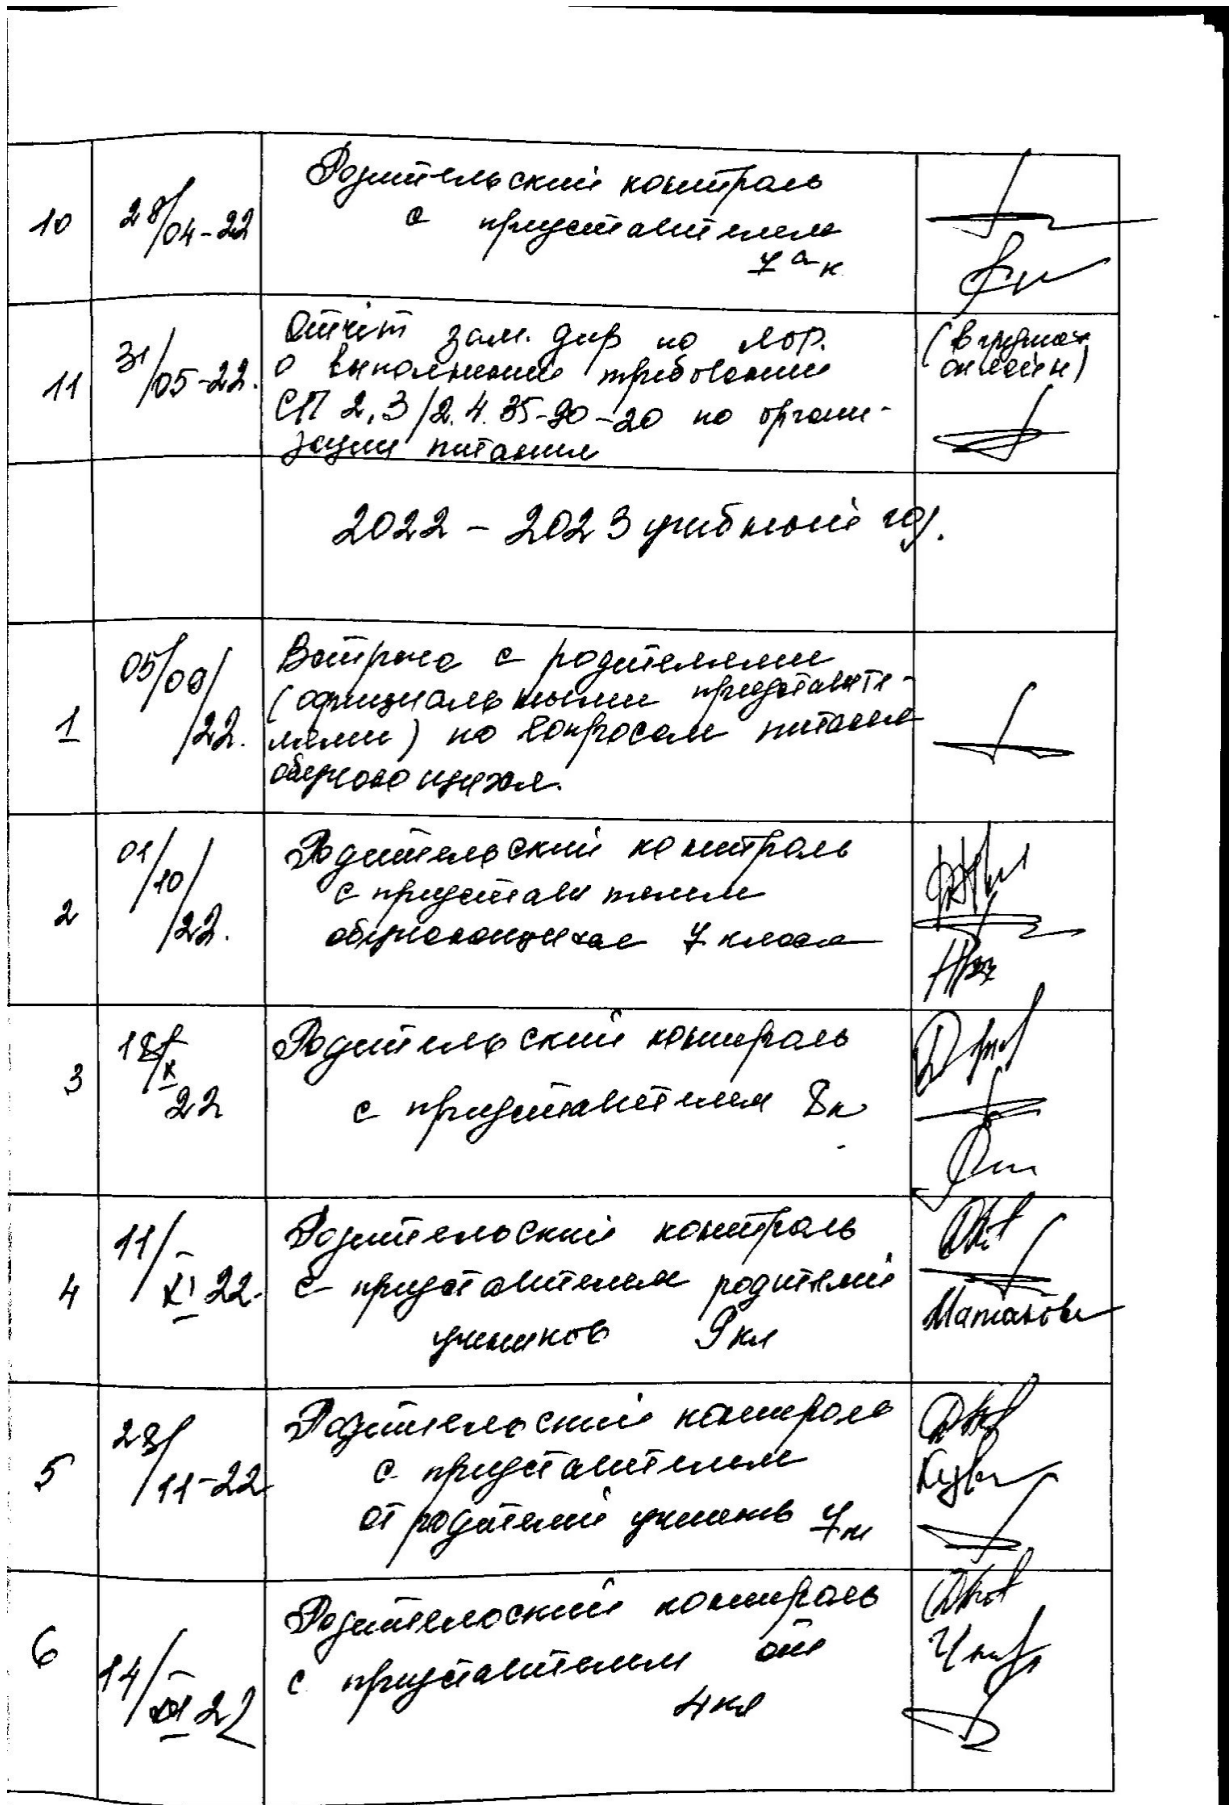 10 28/04-22 Родительский контроль
с представителем
7 а к
11 31/05-22. Отчёт зам. дир по
о выполнении требований
СП 2.3/2.4.35-90-20 по органи-
зации питания
(в группах
онлайн)
2022 - 2023 учебный год.
1 05/09/22. Встреча с родителями
(официальными представите-
лями) по вопросам питания
обучающихся.
2 01/10/22. Родительский контроль
с представителем
обучающихся 7 класса
3 18/X 22 Родительский контроль
с представителем 8к
4 11/XI 22. Родительский контроль
с представителем родителей
учеников 9 кл
5 28/11-22 Родительский контроль
с представителем
от родителей учеников 7 кл
6 14/XII 22 Родительский контроль
с представителем от
4 кл